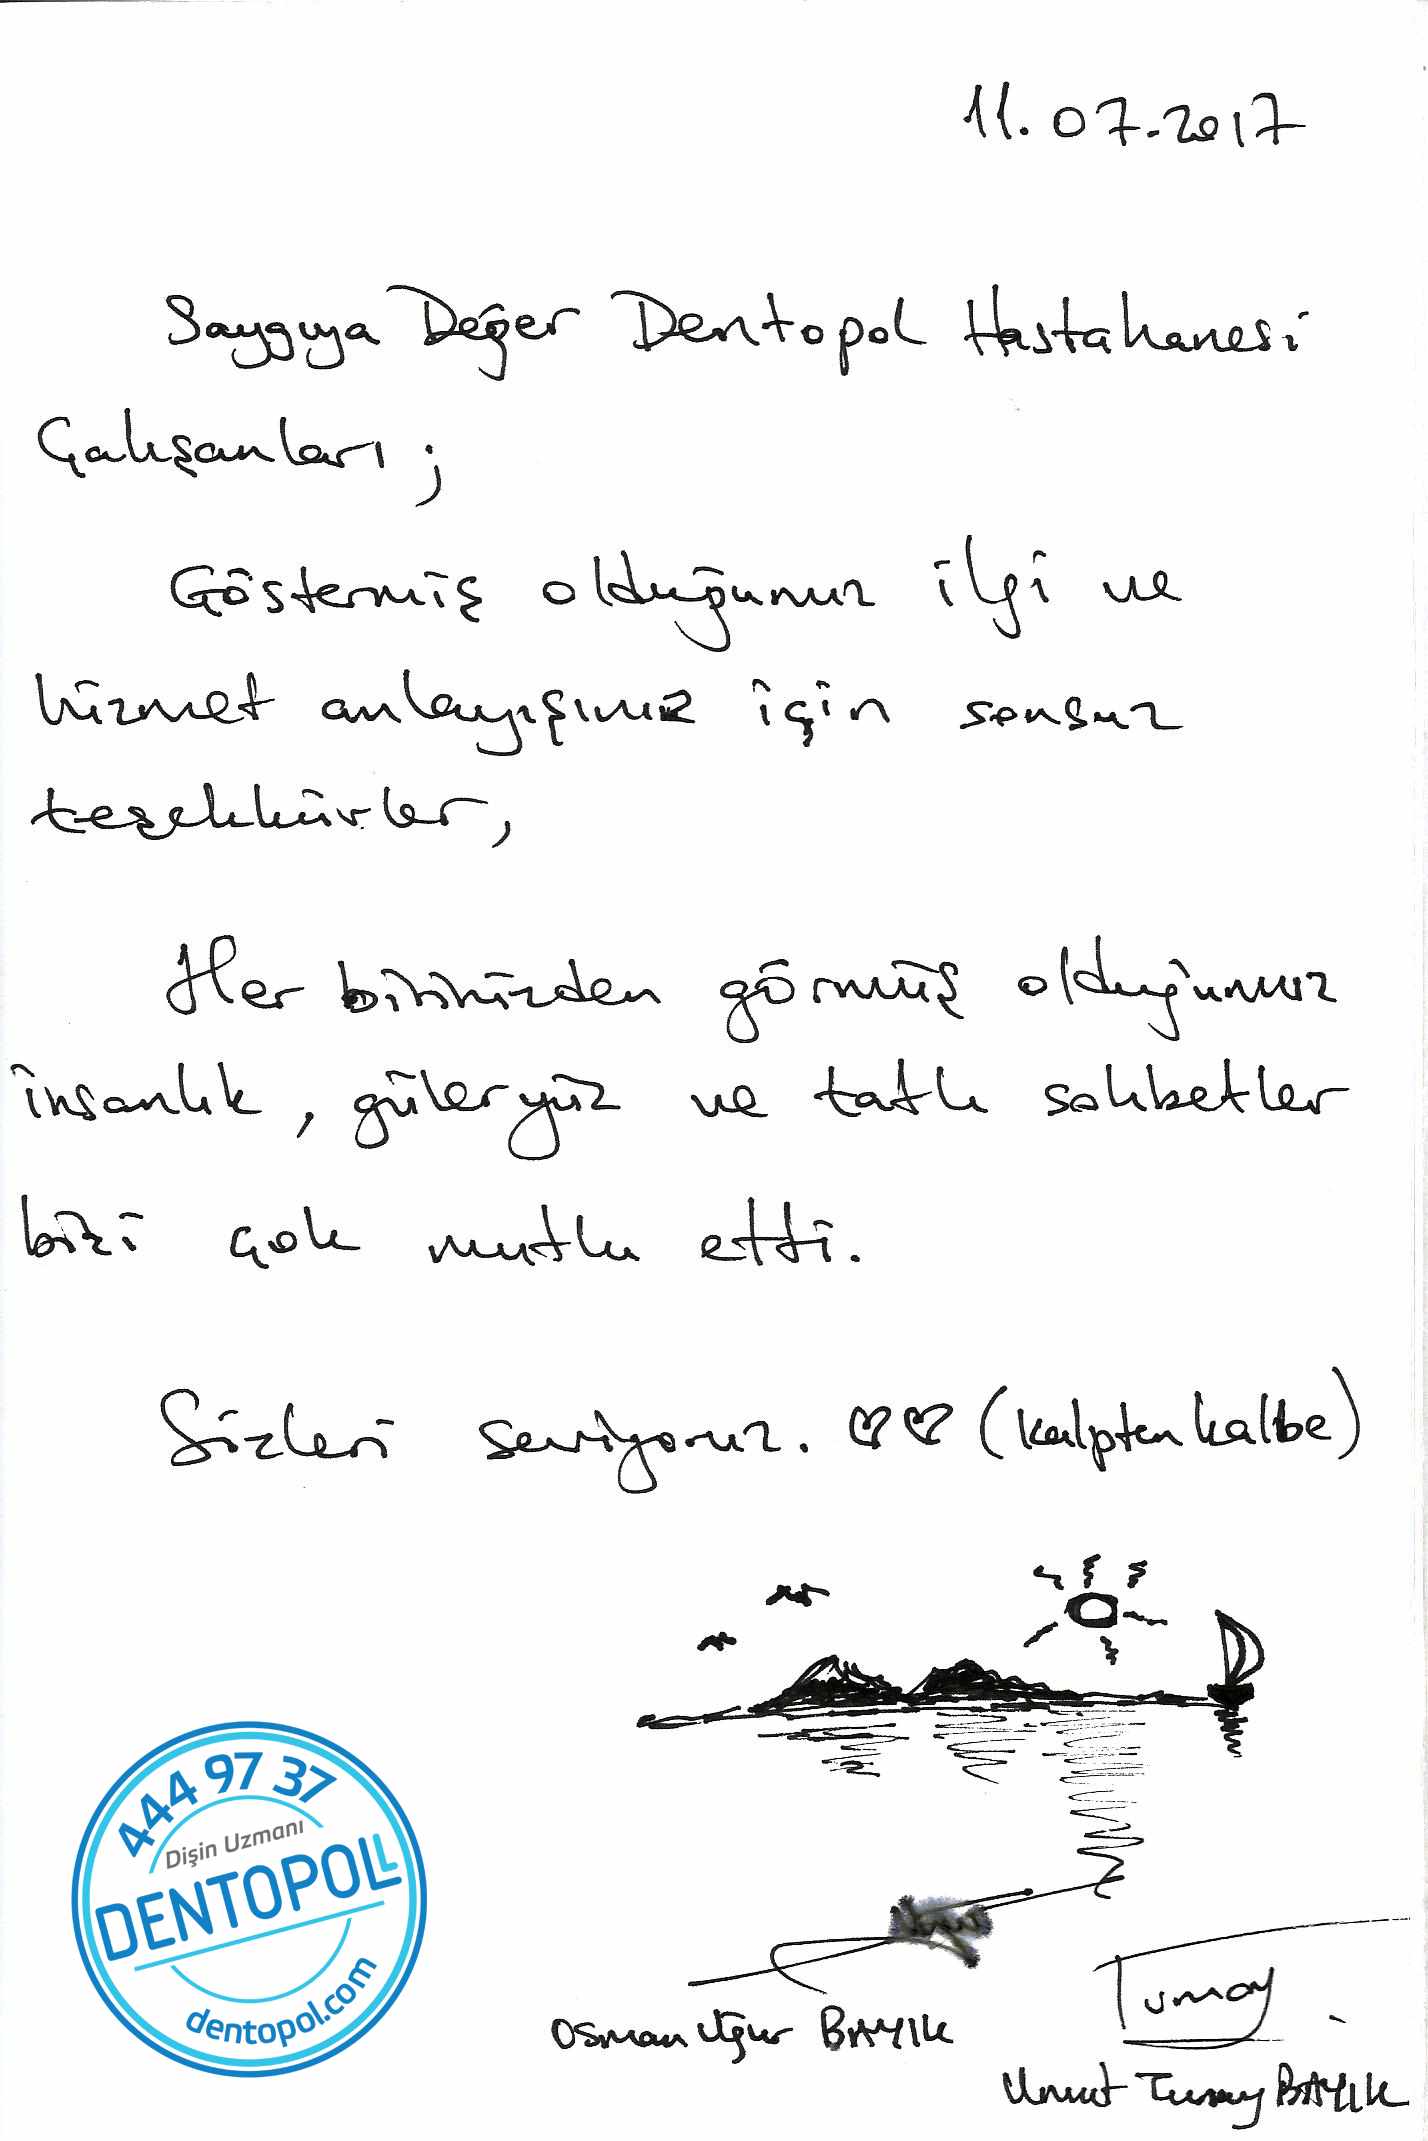 11.07.2017
Saygıya Değer Dentopol Hastahanesi
Çalışanları;
Göstermiş olduğunuz ilgi ve
hizmet anlayışınız için sonsuz
teşekkürler,
Her birinizden görmüş olduğumuz
insanlık, güleryüz ve tatlı sohbetler
bizi çok mutlu etti.
Sizleri seviyoruz. ♡♡ (kalpten kalbe)
444 97 37
Dişin Uzmanı
DENTOPOL
dentopol.com
Osman Uğur BAYIK
Tumay
Umut Tumay BAYIK